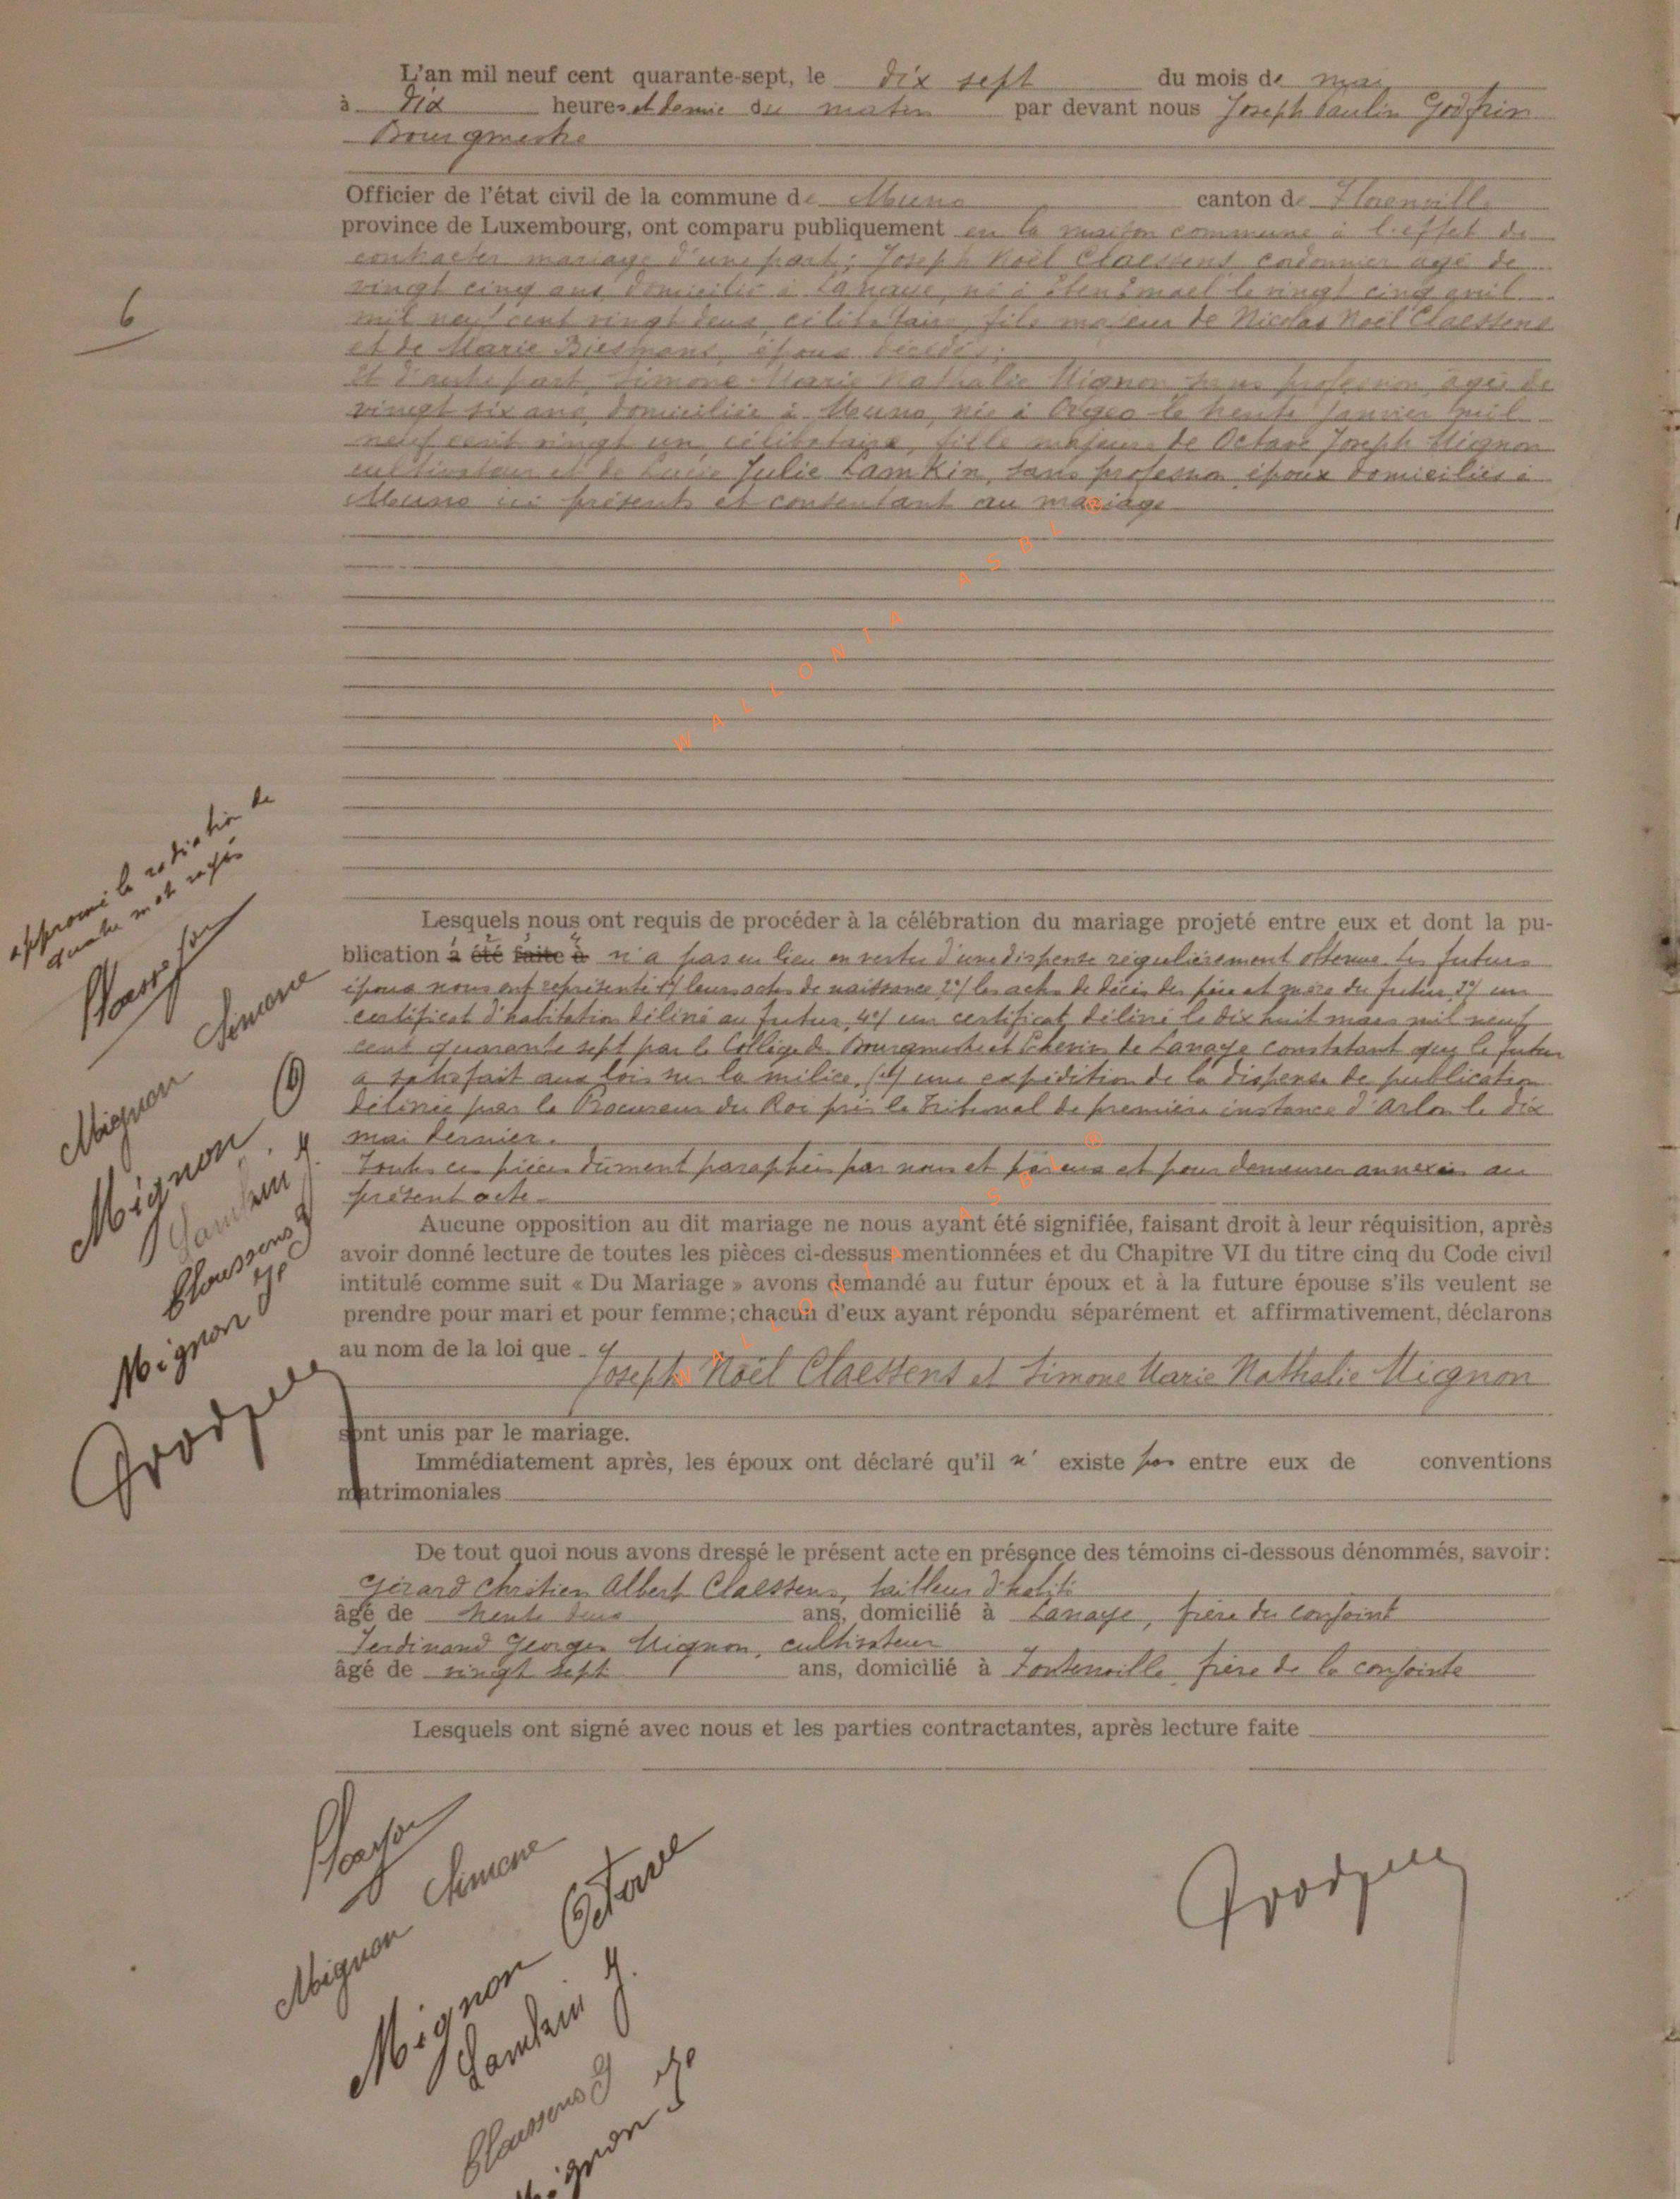 L'an mil neuf cent quarante-sept, le dix sept du mois de mai
à dix heures et demie du matin par devant nous Joseph Paulin Godfrin
Bourgmestre
Officier de l'état civil de la commune de Muno canton de Florenville
province de Luxembourg, ont comparu publiquement en la maison commune à l'effet de
contracter mariage d'une part; Joseph Noël Claessens cordonnier âgé de
vingt cinq ans domicilié à Lanaye, né à le vingt cinq avril
mil neuf cent vingt deux célibataire, fils majeur de Nicolas Noël Claessens
et de Marie Biesmans, époux décédés;
Et d'autre part, Simone Marie Nathalie Mignon sans profession, âgée de
vingt six ans, domiciliée à Muno, née à Orgeo le trente janvier mil
neuf cent vingt un, célibataire, fille majeure de Octave Joseph Mignon
cultivateur et de Lucie Julie Lamkin, sans profession époux domiciliés à
Muno ici présents et consentant au mariage
WALLONIA ASBL ®
6
approuvé la radiation de
quatre mots rayés
Simone
Mignon
Mignon O
Lamkin J.
Claessens G
Mignon
Godfrin
Lesquels nous ont requis de procéder à la célébration du mariage projeté entre eux et dont la pu-
blication a été faite à n'a pas eu lieu en vertu d'une dispense régulièrement obtenue. Les futurs
époux nous ont représenté 1°/ leurs actes de naissance 2°/ les actes de décès des père et mère du futur 3°/ un
certificat d'habitation délivré au futur, 4°/ un certificat délivré le dix huit mars mil neuf
cent quarante sept par le Collège des Bourgmestre et Echevins de Lanaye constatant que le futur
a satisfait aux lois sur la milice, 5°/ une expédition de la dispense de publication
délivrée par le Procureur du Roi près le Tribunal de première instance d'Arlon le dix
mai dernier.
Toutes ces pièces dûment paraphées par nous et par eux et pour demeurer annexées au
présent acte.
WALLONIA ASBL ®
Aucune opposition au dit mariage ne nous ayant été signifiée, faisant droit à leur réquisition, après
avoir donné lecture de toutes les pièces ci-dessus mentionnées et du Chapitre VI du titre cinq du Code civil
intitulé comme suit « Du Mariage » avons demandé au futur époux et à la future épouse s'ils veulent se
prendre pour mari et pour femme; chacun d'eux ayant répondu séparément et affirmativement, déclarons
au nom de la loi que
Joseph Noël Claessens et Simone Marie Nathalie Mignon
sont unis par le mariage.
Immédiatement après, les époux ont déclaré qu'il n' existe pas entre eux de conventions
matrimoniales
De tout quoi nous avons dressé le présent acte en présence des témoins ci-dessous dénommés, savoir:
Gérard Chrétien Albert Claessens, tailleur d'habits
âgé de trente deux ans, domicilié à Lanaye, frère du conjoint
Ferdinand Georges Mignon, cultivateur
âgé de vingt sept ans, domicilié à Fontenoille frère de la conjointe
Lesquels ont signé avec nous et les parties contractantes, après lecture faite
Simone
Mignon
Mignon Octave
Lamkin J.
Claessens G
Mignon
Godfrin